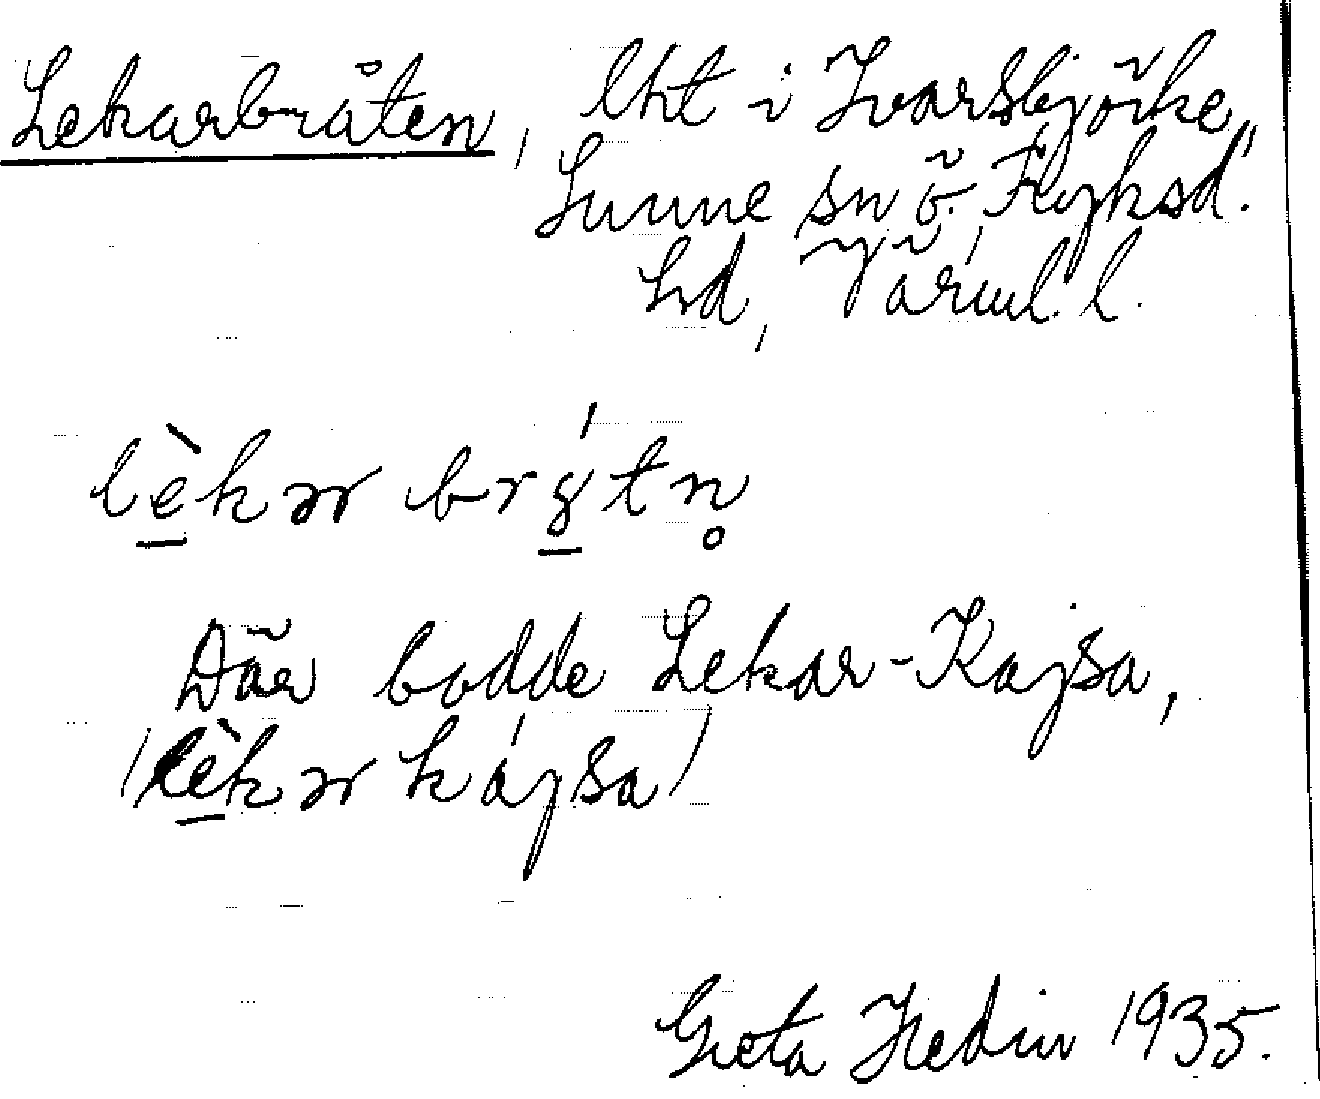 Lekarbråten, lht i Ivarsbjörke,
Sunne sn ö. Fryksd.
hd, Värml. l.
lèkər brýtn̥
Där bodde Lekar-Kajsa,
(lèkər kájsa)
Greta Hedin 1935.